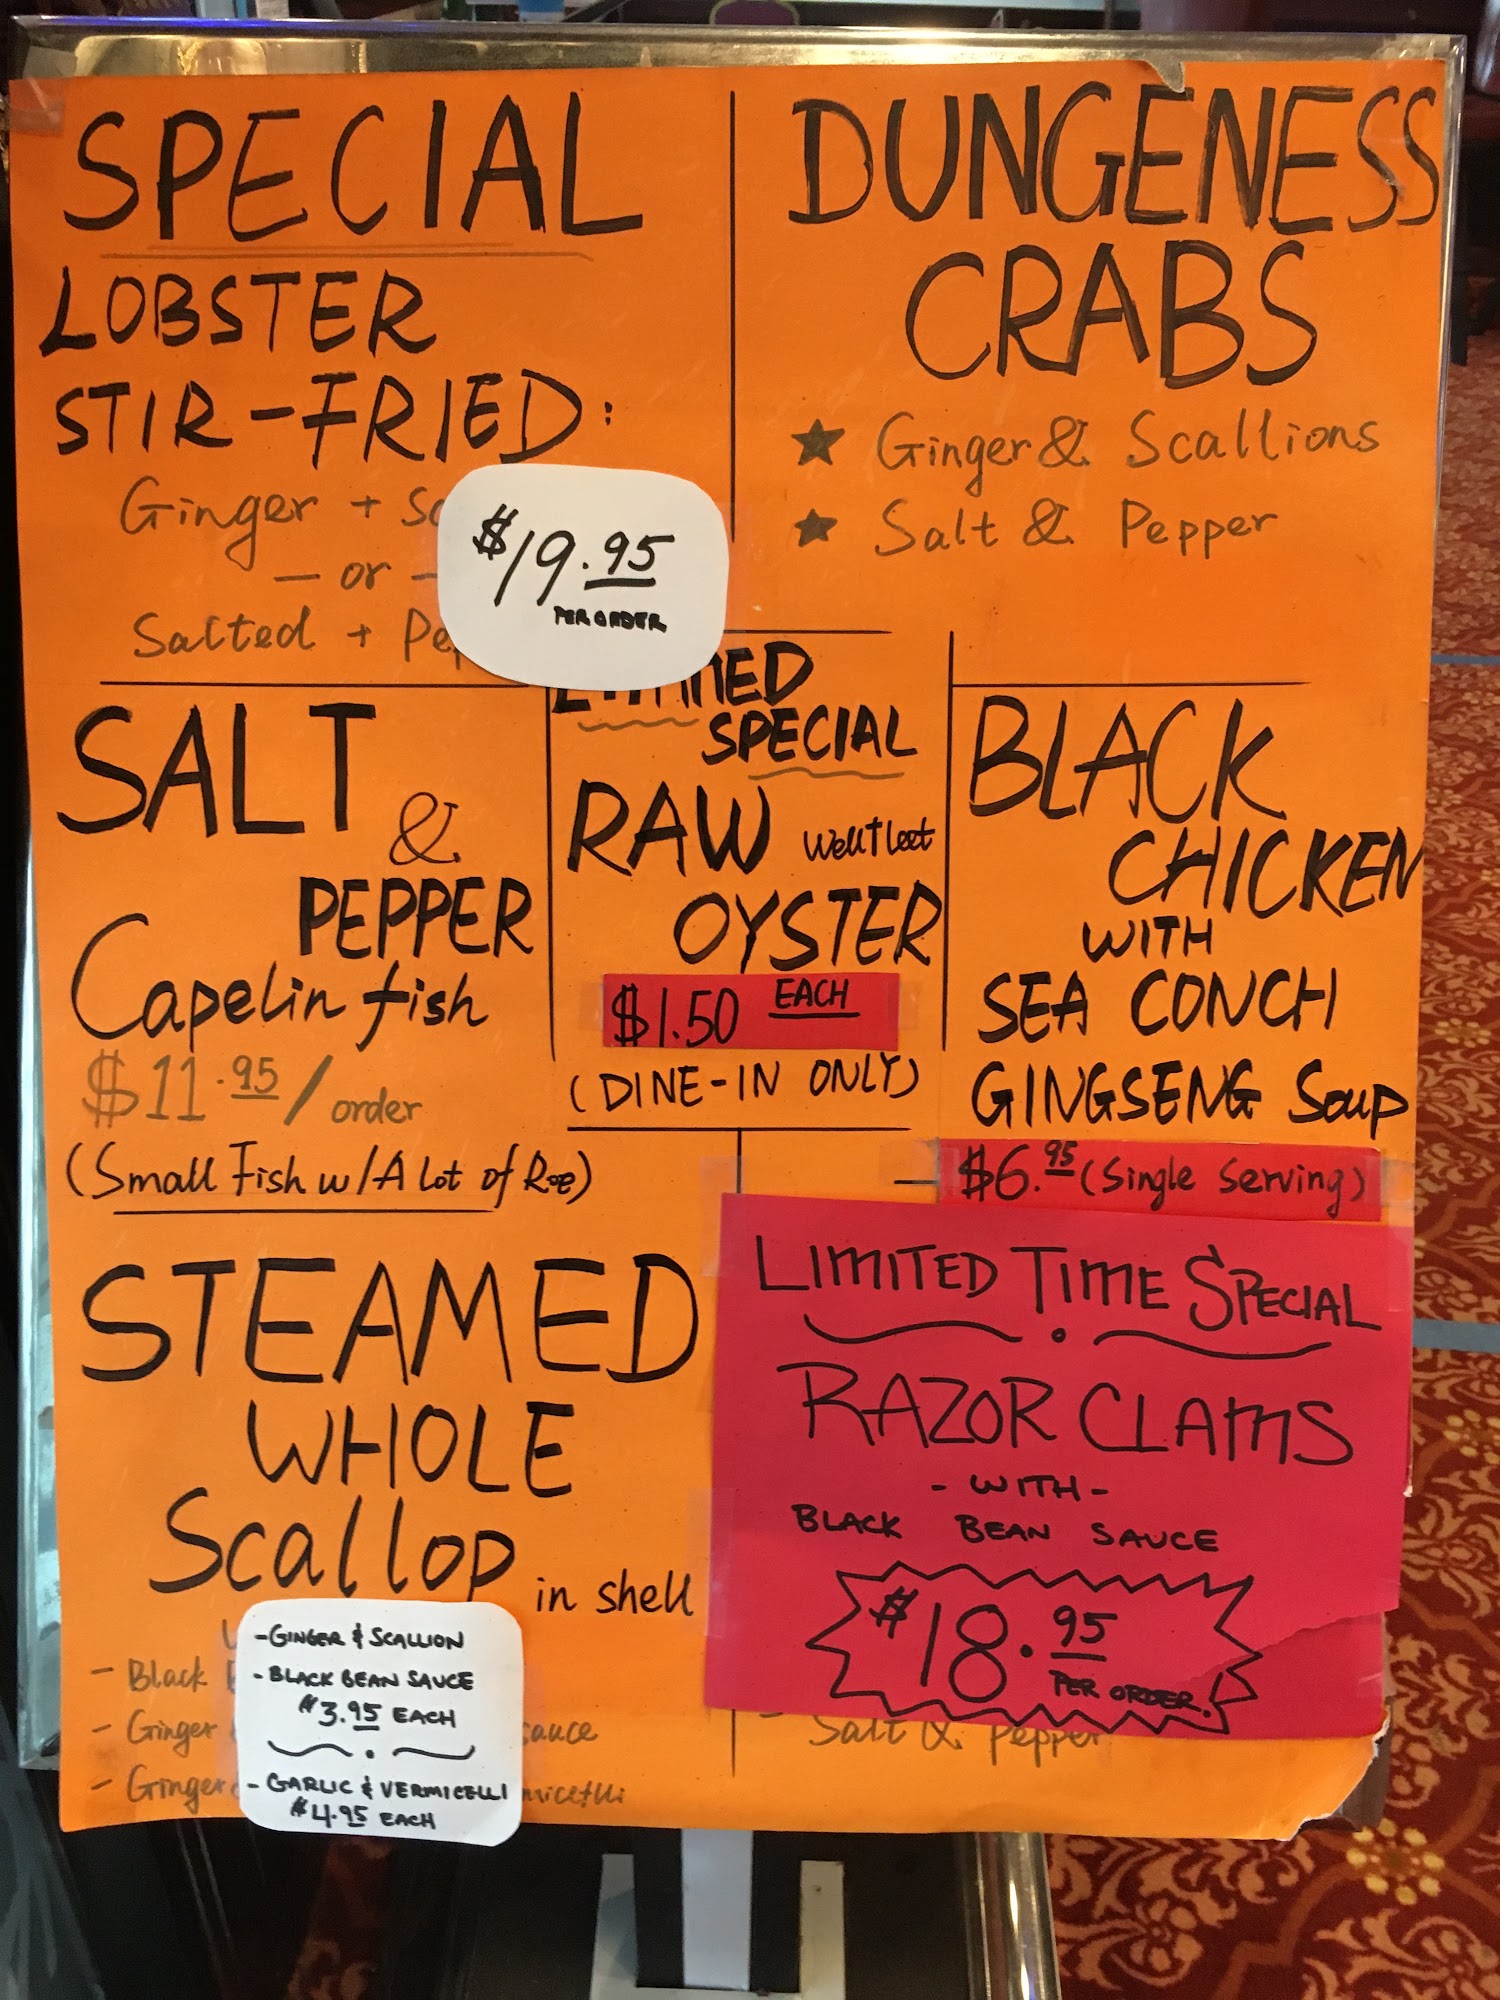 SPECIAL
LOBSTER
STIR-FRIED:
Ginger + Sc
- or -
Salted + Pep
$19.95
PER ORDER
DUNGENESS
CRABS
★ Ginger & Scallions
★ Salt & Pepper
SALT
&
PEPPER
Capelin fish
$11.95/order
(Small Fish w/A Lot of Roe)
LIMITED
SPECIAL
RAW Wellfleet
OYSTER
$1.50 EACH
(DINE-IN ONLY)
BLACK
CHICKEN
WITH
SEA CONCH
GINGSENG Soup
$6.95 (Single Serving)
STEAMED
WHOLE
Scallop in shell
- Black
- Ginger sauce
- Ginger
- GINGER & SCALLION
- BLACK BEAN SAUCE
$3.95 EACH
- GARLIC & VERMICELLI
$4.95 EACH
LIMITED TIME SPECIAL
RAZOR CLAMS
- WITH -
BLACK BEAN SAUCE
$18.95
PER ORDER!
- Salt & Pepper